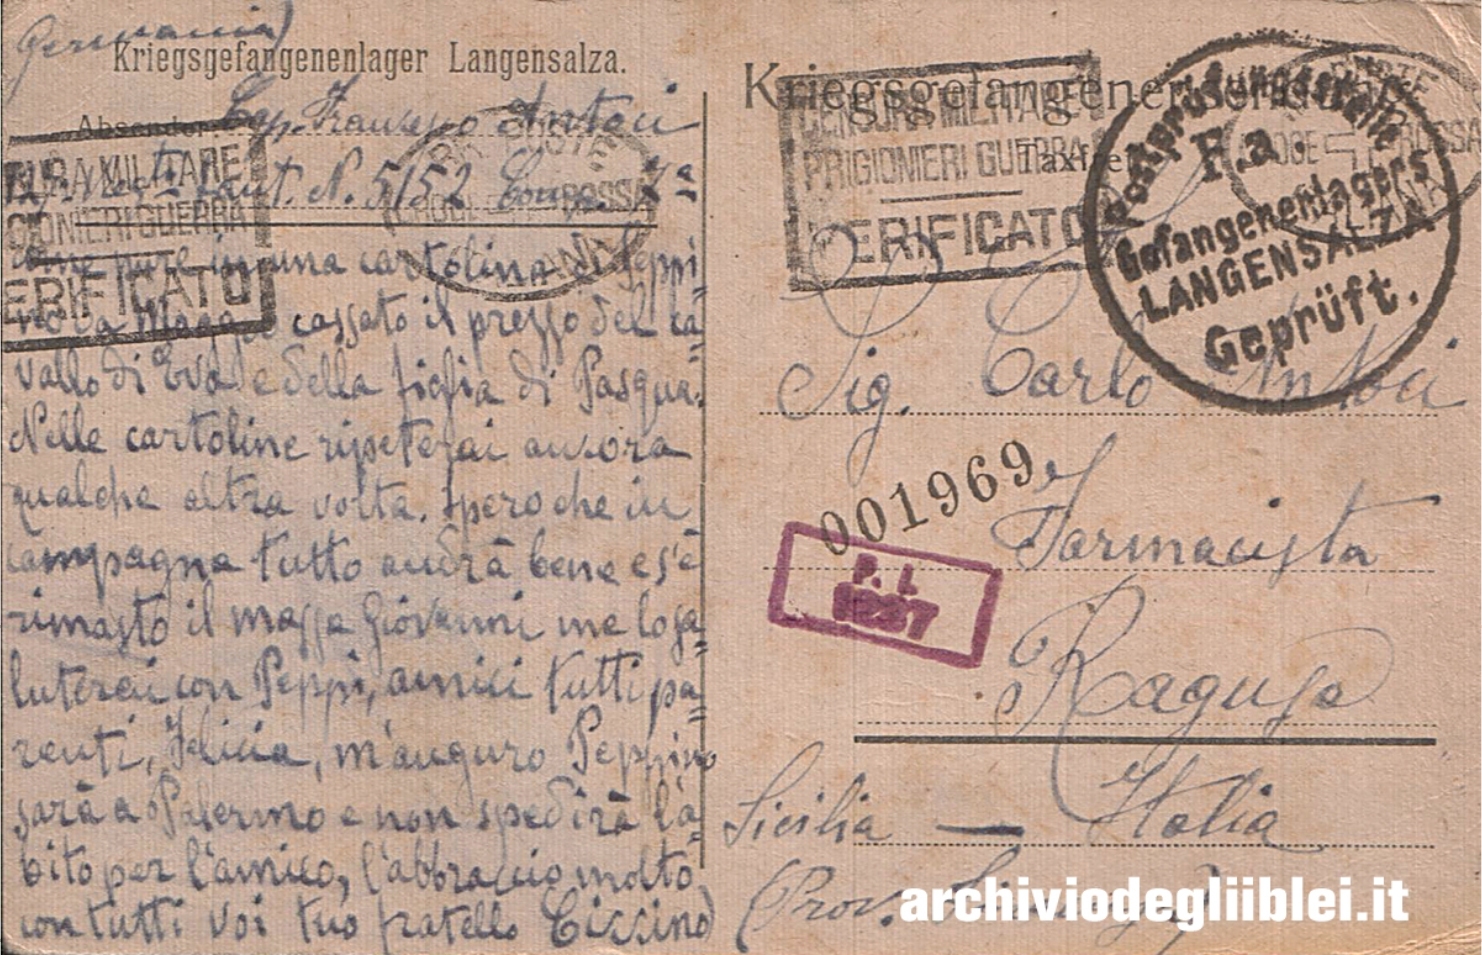 Germania)
Kriegsgefangenenlager Langensalza.
Absender
Cap. Antoci
N. 5152 Comp. 7ª
CENSURA MILITARE
PRIGIONIERI GUERRA
VERIFICATO
come pure in una cartolina di Peppi=
no da cassato il prezzo del ca=
vallo di Eva e della figlia di Pasqua.
Nelle cartoline ripeterai ancora
qualche altra volta. Spero che in
campagna tutto andrà bene e s'è
rimasto il massa Giovanni me lo sa=
luterai con Peppi, amici tutti pa=
renti, Felicia, m'auguro Peppino
sarà a Palermo e non spedirà l'a=
bito per l'amico, l'abbraccio molto
con tutti voi tuo fratello Ciccino
Kriegsgefangenensendung
Taxfrei
CENSURA MILITARE
PRIGIONIERI GUERRA
VERIFICATO
Postprüfungsstelle
F.a.
Gefangenenlagers
LANGENSALZA
Geprüft.
CROCE ROSSA
Sig. Carlo Antoci
001969
Farmacista
P. L
1237
Ragusa
Sicilia — Italia
(Prov.
archiviodegliiblei.it